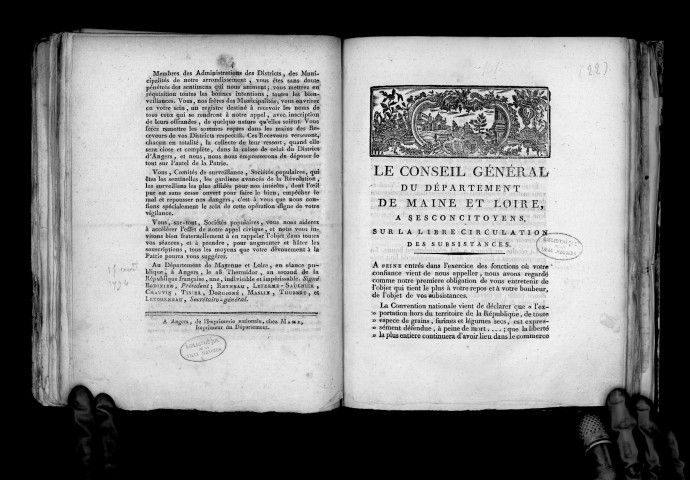 4
Membres des Administrations des Districts, des Muni-
cipalités de notre arrondissement, vous êtes sans doute
pénétrés des sentimens qui nous animent; vous mettrez en
réquisition toutes les bonnes intentions, toutes les bien-
veillances. Vous, nos frères des Municipalités, vous ouvrirez
en votre sein, un registre destiné à recevoir les noms de
tous ceux qui se rendront à notre appel, avec inscription
de leurs offrandes, de quelque nature qu'elles soient. Vous
ferez remettre les sommes reçues dans les mains des Re-
ceveurs de vos Districts respectifs. Ces Receveurs verseront,
chacun en totalité, la collecte de leur ressort, quand elle
sera close et complète, dans la caisse de celui du District
d'Angers, et nous, nous nous empresserons de déposer le
tout sur l'autel de la Patrie.
Vous, Comités de surveillance, Sociétés populaires, qui
êtes les sentinelles, les gardiens avancés de la Révolution,
les surveillans les plus affidés pour nos intérêts, dont l'œil
pur est sans cesse ouvert pour faire le bien, empêcher le
mal et repousser nos dangers, c'est à vous que nous con-
fions spécialement le soin de cette opération digne de votre
vigilance.
Vous, sur-tout, Sociétés populaires, vous nous aiderez
à accélérer l'effet de notre appel civique, et nous vous in-
vitons bien fraternellement à en rappeler l'objet dans toutes
vos séances, et à prendre, pour augmenter et hâter les
souscriptions, tous les moyens que votre dévouement à la
Patrie pourra vous suggérer.
Au Département de Mayenne et Loire, en séance pu-
blique, à Angers, le 28 Thermidor, an second de la
République française, une, indivisible et impérissable. Signé
Président;
et
Secrétaire-général.
A Angers, de l'Imprimerie nationale, chez MAME,
Imprimeur du Département.
(22)
LE CONSEIL GÉNÉRAL
DU DÉPARTEMENT
DE MAINE ET LOIRE,
A SES CONCITOYENS,
SUR LA LIBRE CIRCULATION
DES SUBSISTANCES.
A PEINE entrés dans l'exercice des fonctions où votre
confiance vient de nous appeller, nous avons regardé
comme notre première obligation de vous entretenir de
l'objet qui tient le plus à votre repos et à votre bonheur,
de l'objet de vos subsistances.
La Convention nationale vient de déclarer que « l'ex-
» portation hors du territoire de la République, de toute
» espece de grains, farines et légumes secs, est expres-
» sément défendue, à peine de mort....; que la liberté
» la plus entiere continuera d'avoir lieu dans le commerce